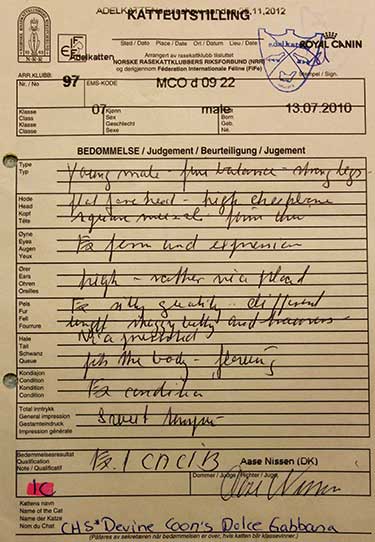 KATTEUTSTILLING
ADELKATTEN 25.11.2012
Sted / Dato Place / Date Ort / Datum Lieu / Date
NRR
FIFe
Adelkatten
ROYAL CANIN
Arrangert av rasekattklubben
NORSKE RASEKATTKLUBBERS RIKSFORBUND (NRR)
og derigjennom Fédération Internationale Féline (FIFe)
Stempel / Sign.
ARR.KLUBB:
Nr. / No 97
EMS-KODE MCO d 09 22
Klasse 07 Kjønn male Født 13.07.2010
Class Sex Born
Klasse Geschlecht Geb.
Classe Sexe Né
BEDØMMELSE / Judgement / Beurteiligung / Jugement
Type Young male - fine balance - strong legs
Typ
Hode flat fore head - high cheekbone
Head
Kopf square muzzle - firm chin
Tête
Øyne
Eyes Ex form and expression
Augen
Yeux
Ører
Ears high - rather nice placed
Ohren
Oreilles
Pels Ex silky quality - different
Fur
Fell length shaggy belly and trousers
Fourrure
Hale
Tail
Schwanz fits the body - flowing
Queue
Kondisjon
Condition Ex condition
Kondition
Condition
Total inntrykk
General impression Sweet temper
Gestamteindruck
Impression générale
Bedømmelsesresultat
Qualification Ex. 1 CACIB Aase Nissen (DK)
Note / Qualificatif
Dommer / Judge / Richter / Juge
1C Aase Nissen
Kattens navn
Name of the Cat
Name der Katze
Nom du Chat CHS*Devine Coon's Dolce Gabbana
(Påføres av sekretæren når bedømmelsen er over, hvis katten blir klassevinner.)